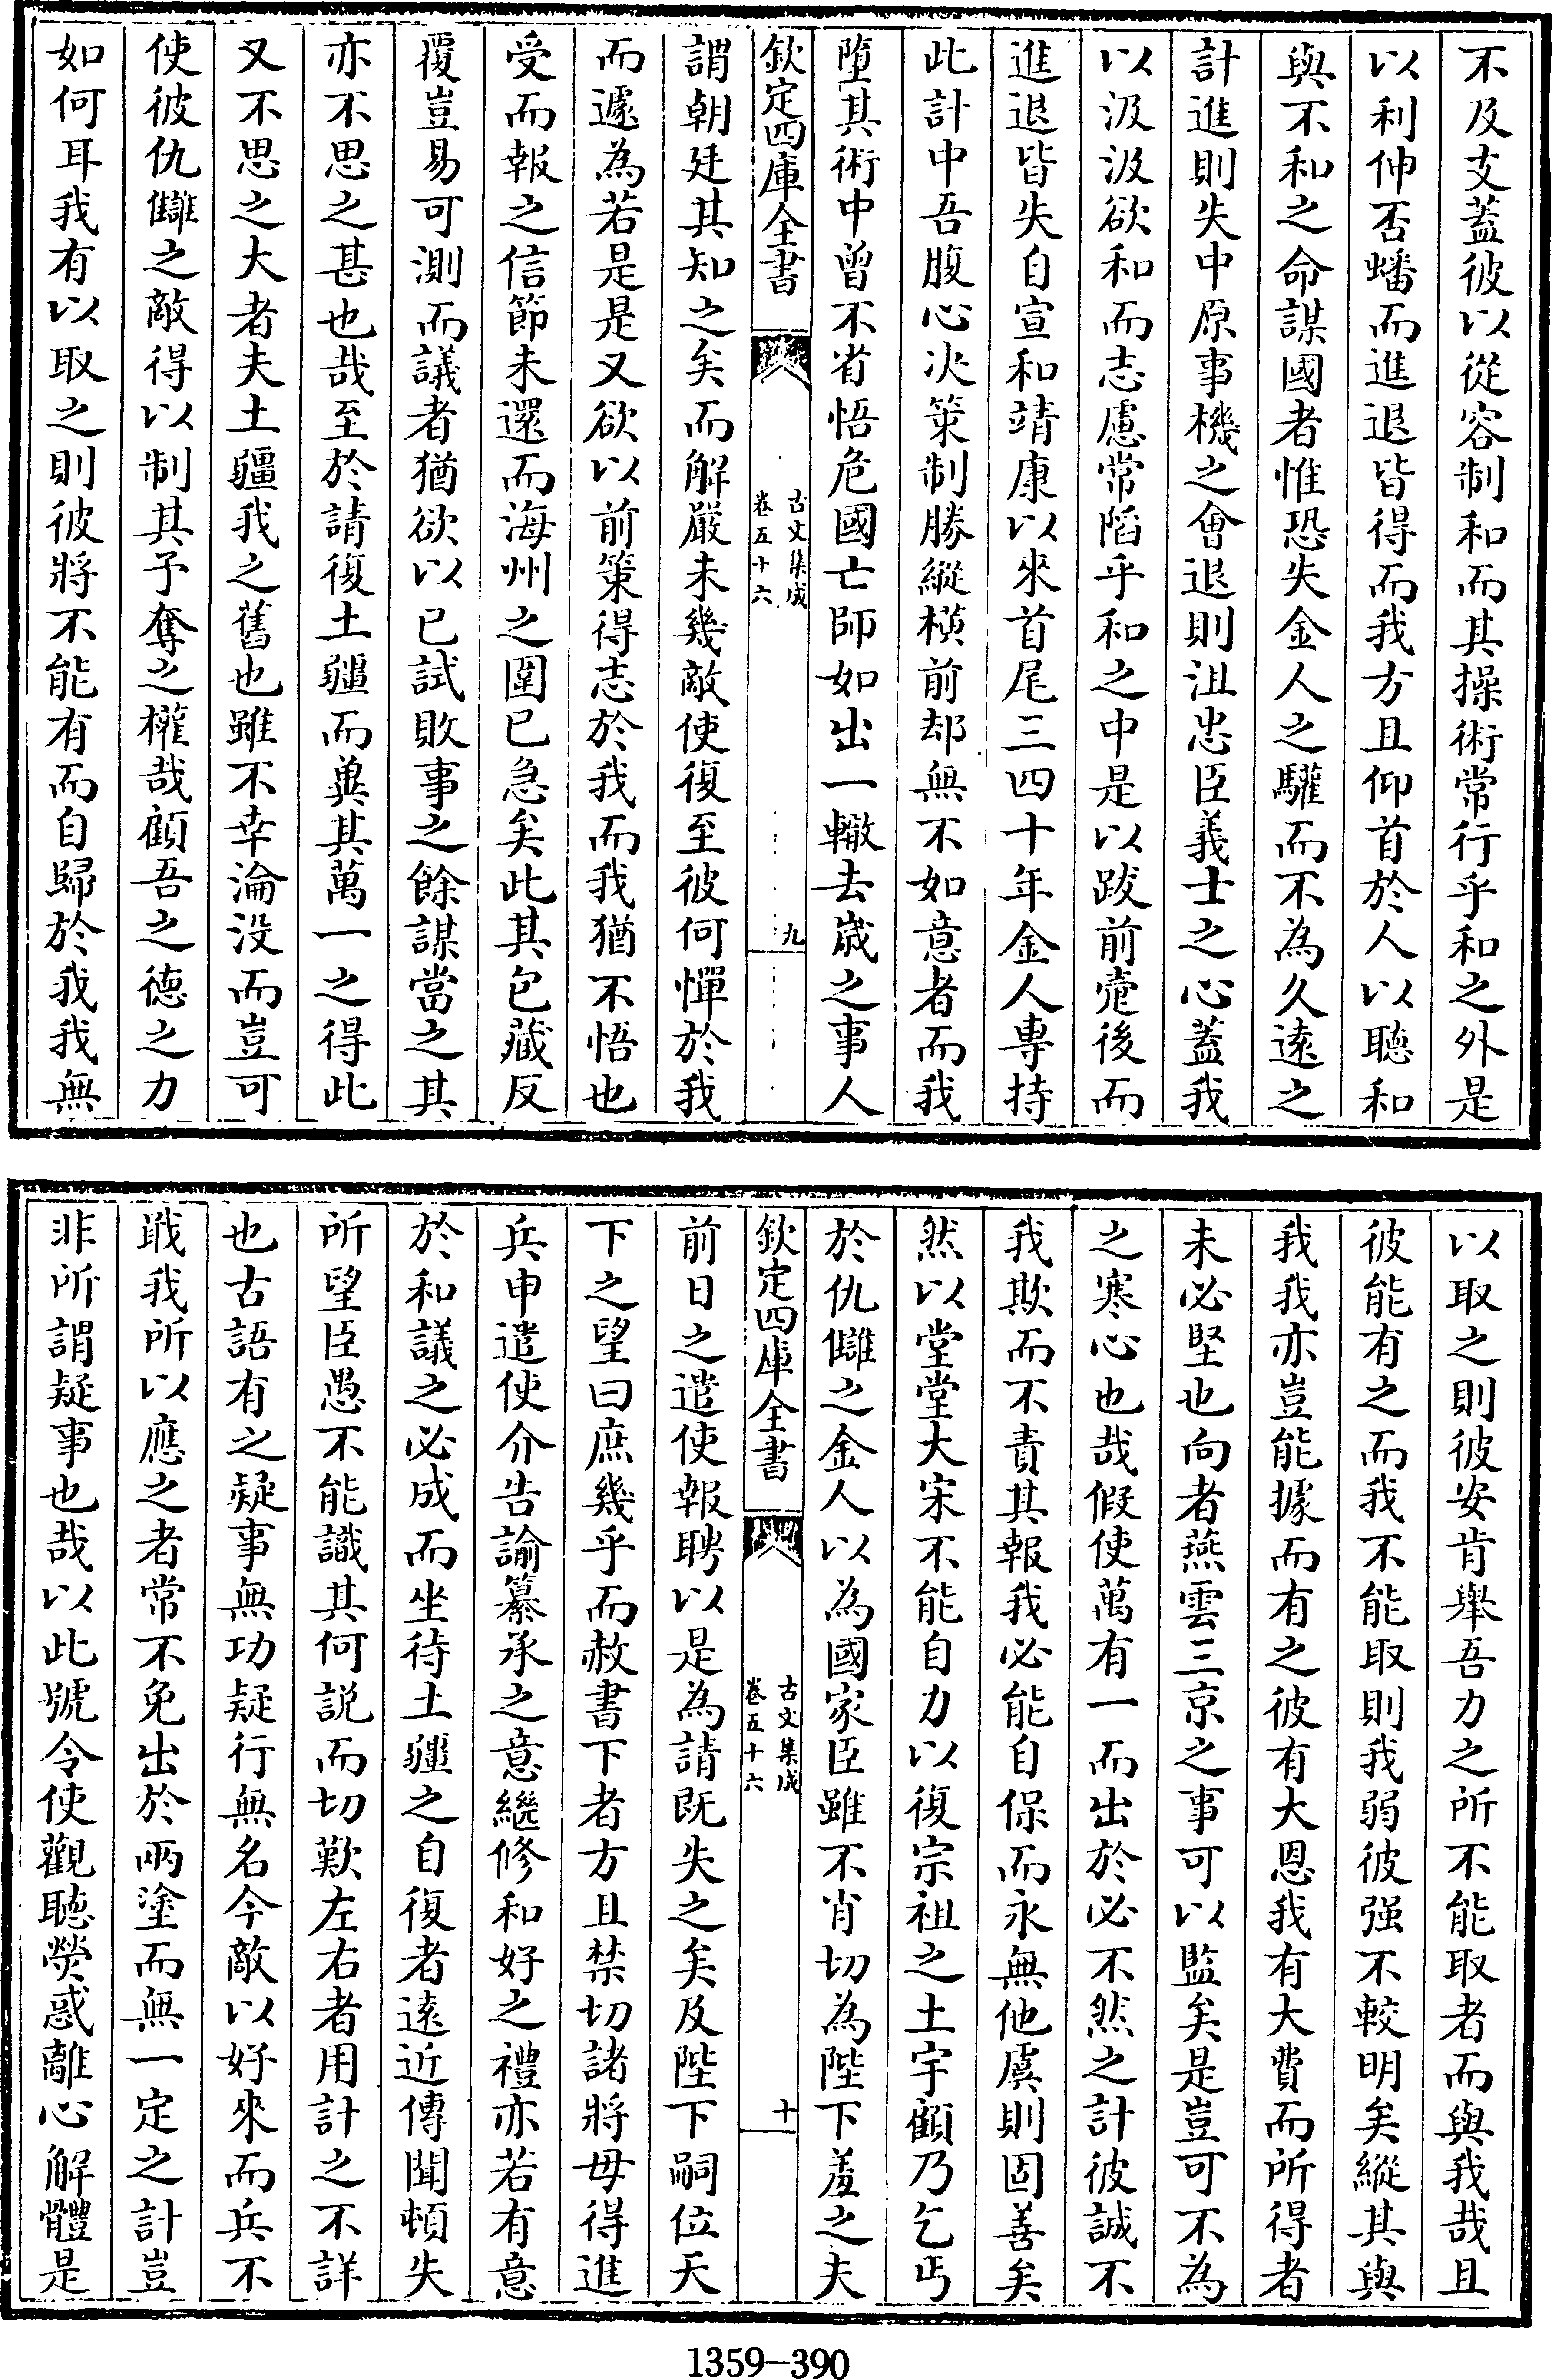 不及支蓋彼以從容制和而其操術常行乎和之外是
以利伸否蟠而進退皆得而我方且仰首於人以聽和
與不和之命謀國者惟恐失金人之驩而不為久遠之
計進則失中原事機之會退則沮忠臣義士之心蓋我
以汲汲欲和而志慮常陷乎和之中是以跋前疐後而
進退皆失自宣和靖康以來首尾三四十年金人專持
此計中吾腹心决策制勝縱横前却無不如意者而我
墮其術中曾不省悟危國亡師如出一轍去歲之事人
欽定四庫全書
古文集成
卷五十六
九
謂朝廷其知之矣而解嚴未幾敵使復至彼何憚於我
而遽為若是是又欲以前策得志於我而我猶不悟也
受而報之信節未還而海州之圍已急矣此其包藏反
覆豈易可測而議者猶欲以已試敗事之餘謀當之其
亦不思之甚也哉至於請復土疆而冀其萬一之得此
又不思之大者夫土疆我之舊也雖不幸淪没而豈可
使彼仇讎之敵得以制其予奪之權哉顧吾之德之力
如何耳我有以取之則彼將不能有而自歸於我我無
以取之則彼安肯舉吾力之所不能取者而與我哉且
彼能有之而我不能取則我弱彼强不較明矣縱其與
我我亦豈能據而有之彼有大恩我有大費而所得者
未必堅也向者燕雲三京之事可以監矣是豈可不為
之寒心也哉假使萬有一而出於必不然之計彼誠不
我欺而不責其報我必能自保而永無他虞則固善矣
然以堂堂大宋不能自力以復宗祖之土宇顧乃乞丐
於仇讎之金人以為國家臣雖不肖切為陛下羞之夫
欽定四庫全書
古文集成
卷五十六
十
前日之遣使報聘以是為請既失之矣及陛下嗣位天
下之望曰庶幾乎而赦書下者方且禁切諸將毋得進
兵申遣使介告諭纂承之意繼修和好之禮亦若有意
於和議之必成而坐待土疆之自復者遠近傳聞頓失
所望臣愚不能識其何説而切歎左右者用計之不詳
也古語有之疑事無功疑行無名今敵以好來而兵不
戢我所以應之者常不免出於兩塗而無一定之計豈
非所謂疑事也哉以此號令使觀聽熒惑離心解體是
1359-390